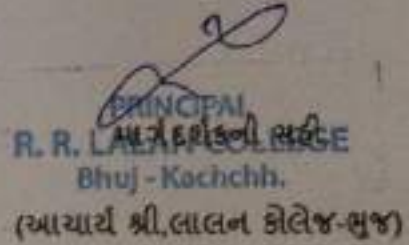 PRINCIPAL
માર્ગદર્શકની સહી
R. R. LALAN COLLEGE
Bhuj - Kachchh.
(આચાર્ય શ્રી,લાલન કોલેજ-ભુજ)